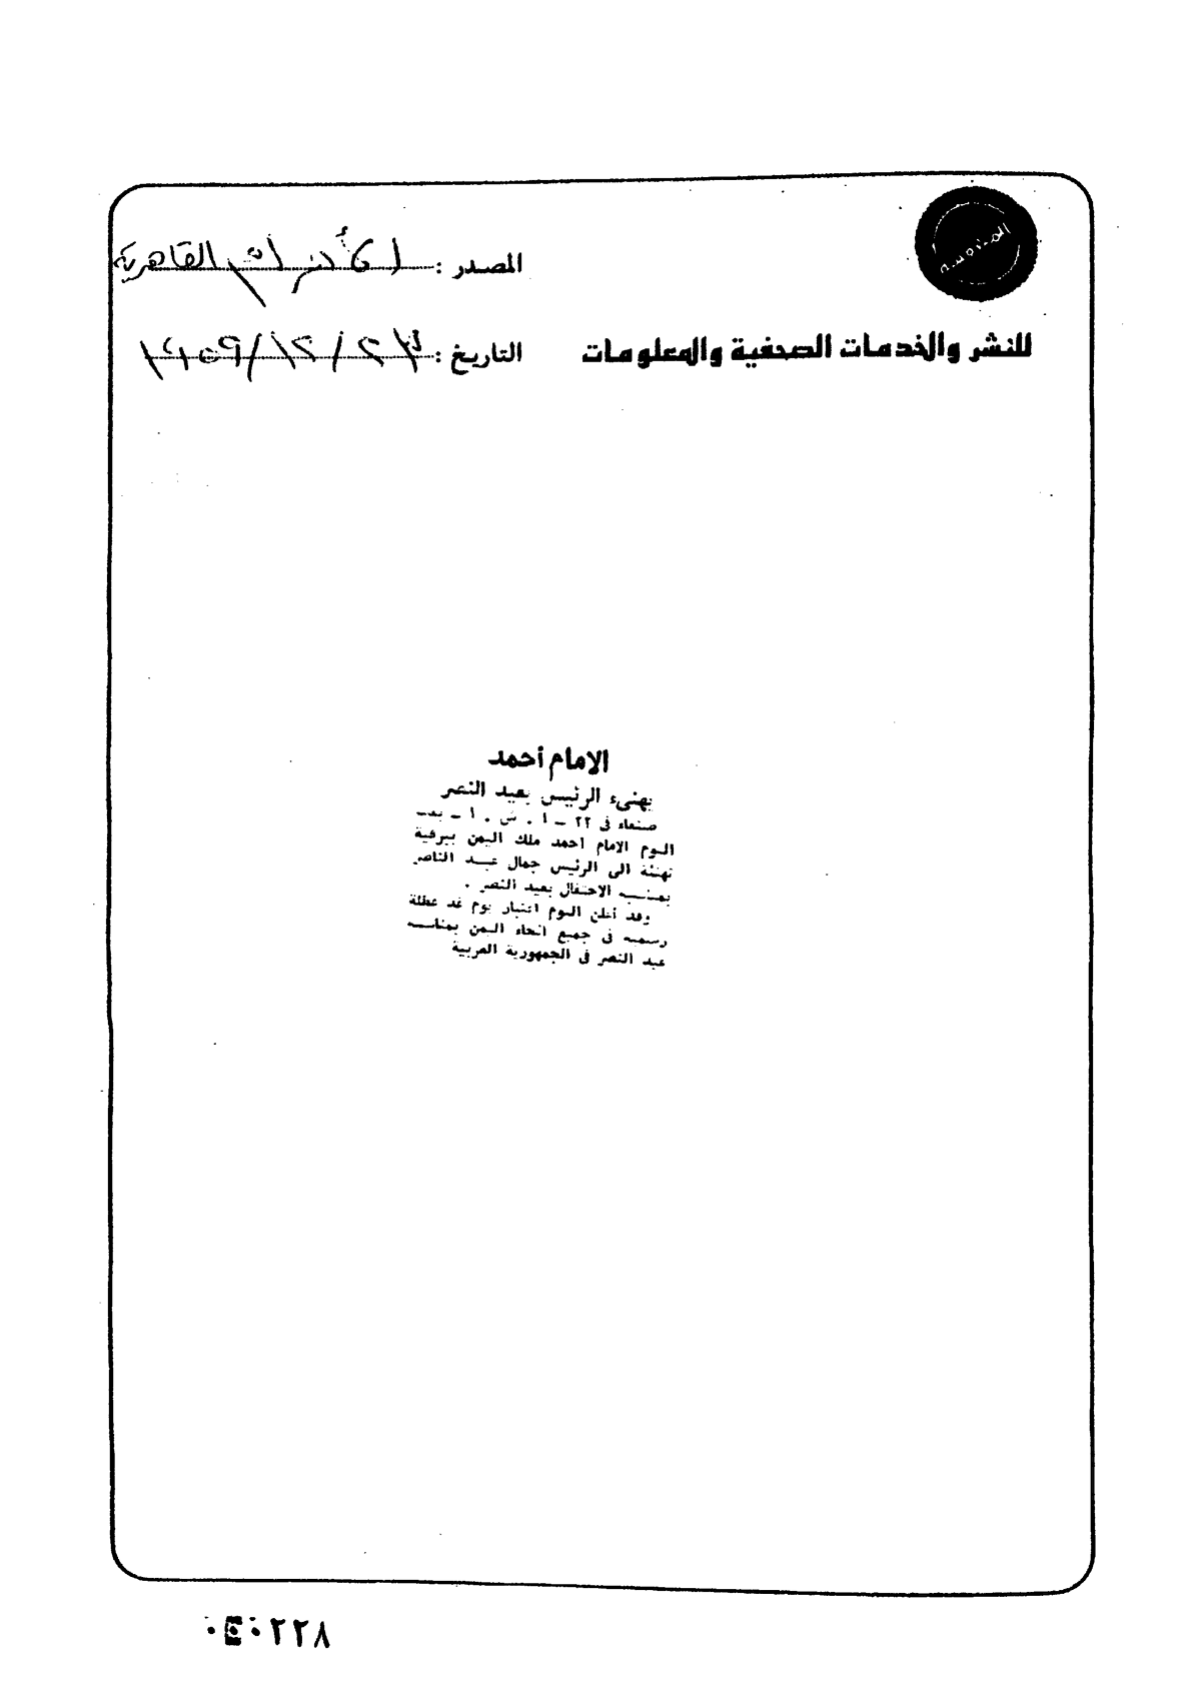 المصدر : الأهرام القاهرية
للنشر والخدمات الصحفية والمعلومات
التاريخ : ٢٣/١٢/١٩٥٩
الامام أحمد
يهنىء الرئيس بعيد النصر
صنعاء في ٢٢ - ا . ش . ا - بعث
اليوم الامام أحمد ملك اليمن ببرقية
تهنئة الى الرئيس جمال عبد الناصر
بمناسبة الاحتفال بعيد النصر .
وقد أعلن اليوم اعتبار يوم غد عطلة
رسمية في جميع انحاء اليمن بمناسبة
عيد النصر في الجمهورية العربية